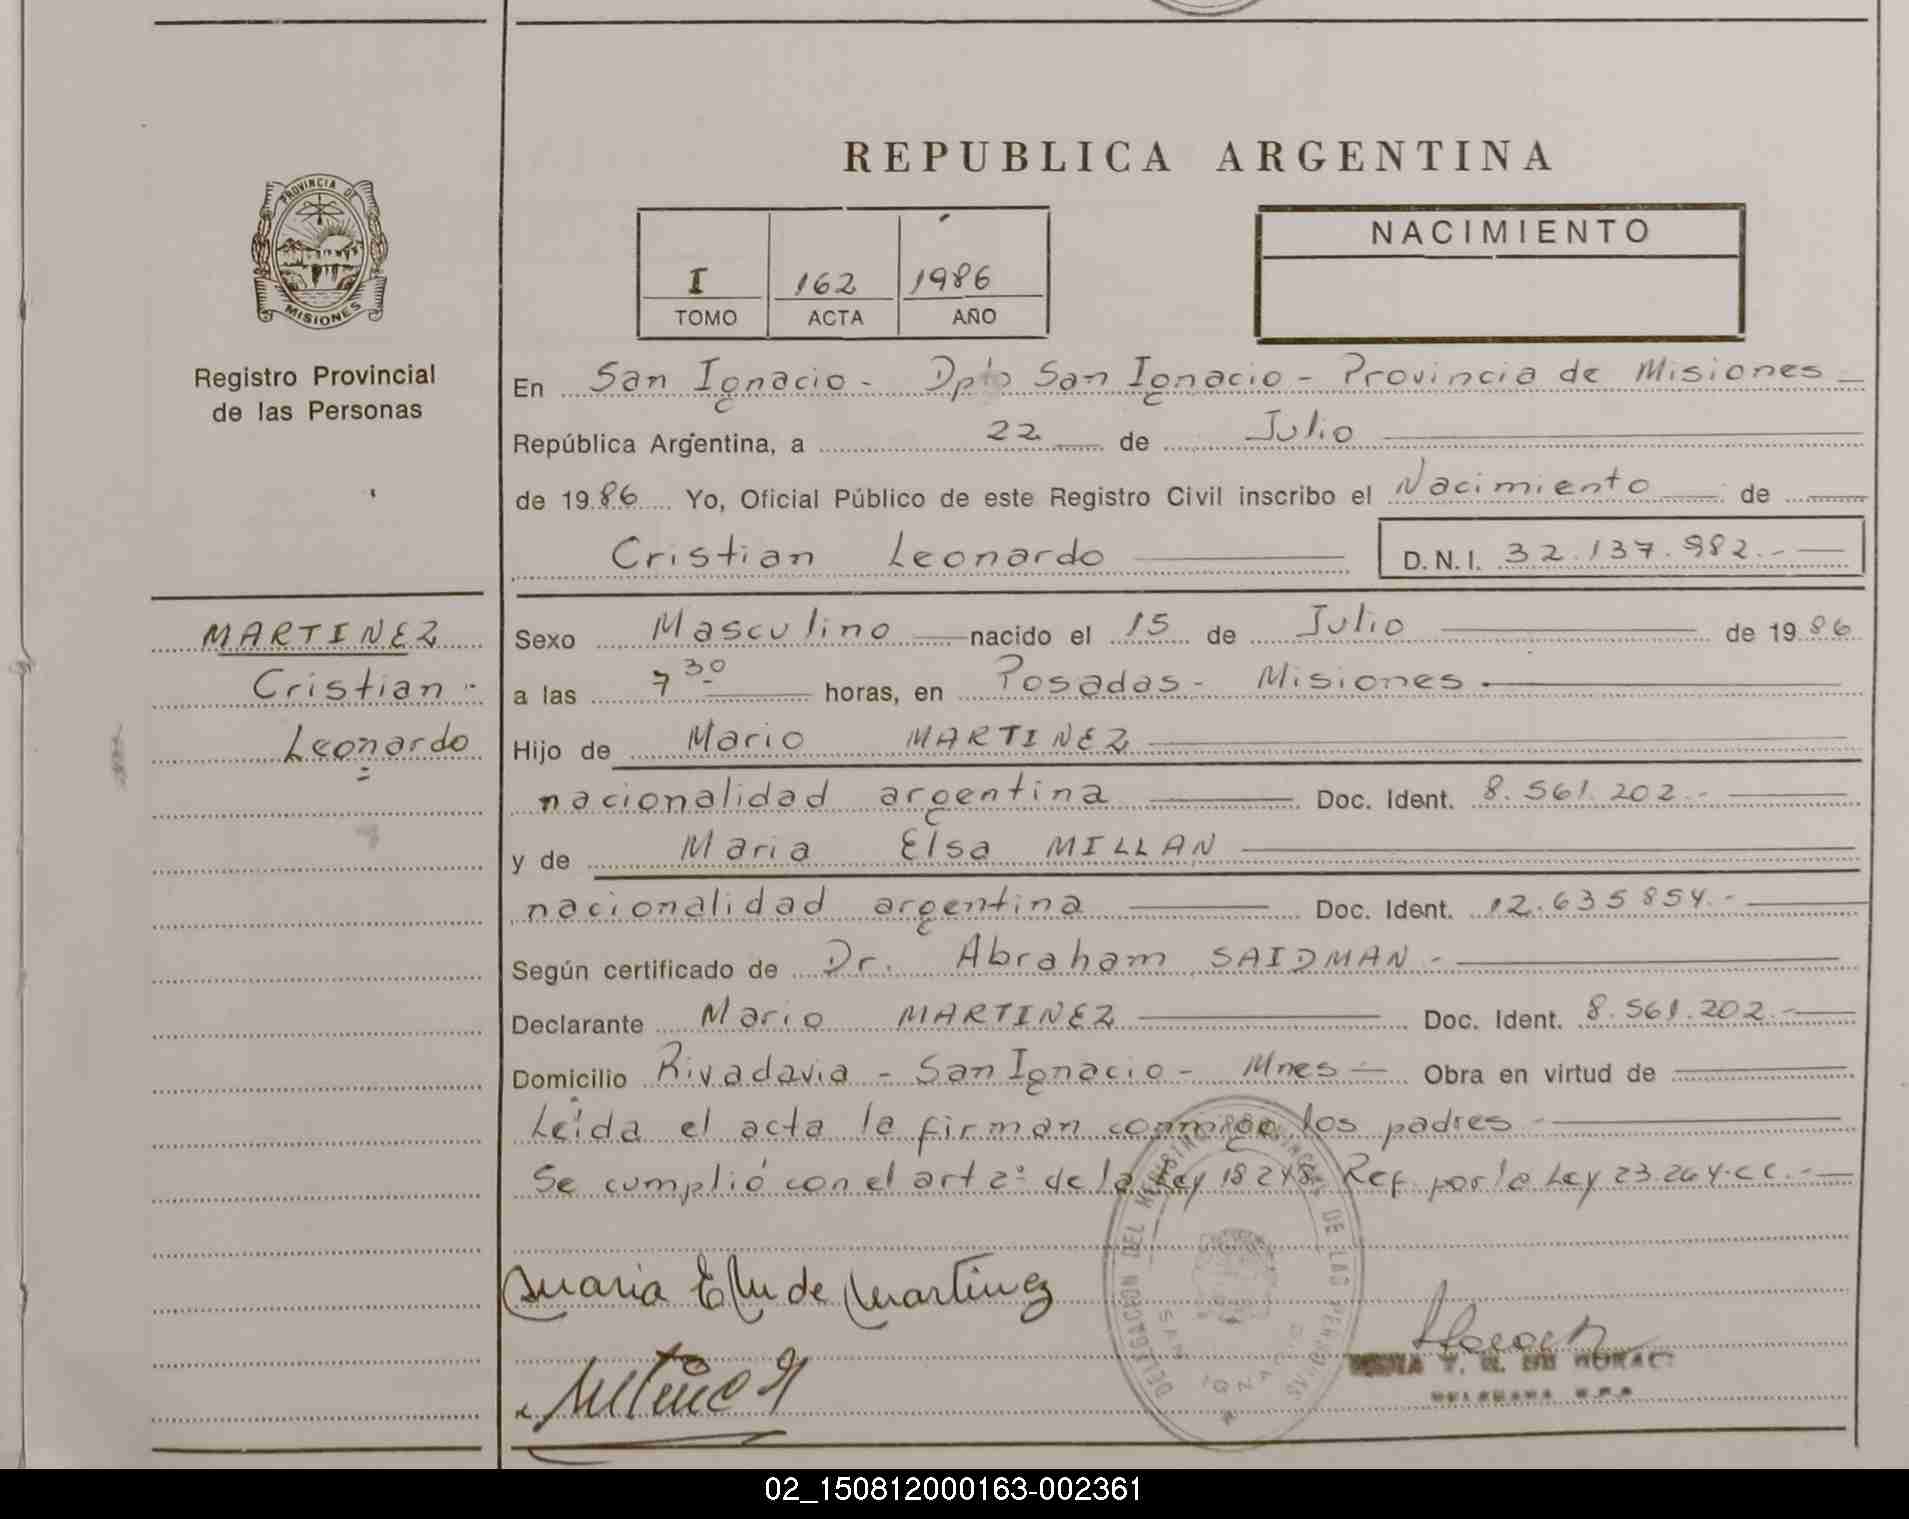 REPUBLICA ARGENTINA
PROVINCIA DE
MISIONES
Registro Provincial
de las Personas
I 162 1986
TOMO ACTA AÑO
NACIMIENTO
En San Ignacio - Dpto San Ignacio - Provincia de Misiones
República Argentina, a 22 de Julio
de 1986 Yo, Oficial Público de este Registro Civil inscribo el Nacimiento de
Cristian Leonardo D.N.I. 32.137.982.-
MARTINEZ
Cristian -
Leonardo
Sexo Masculino nacido el 15 de Julio de 1986
a las 7 30 horas, en Posadas - Misiones -
Hijo de Mario MARTINEZ
nacionalidad argentina Doc. Ident. 8.561.202.-
y de Maria Elsa MILLAN
nacionalidad argentina Doc. Ident. 12.635854.-
Según certificado de Dr. Abraham SAIDMAN -
Declarante Mario MARTINEZ Doc. Ident. 8.561.202.-
Domicilio Rivadavia - San Ignacio - Mnes - Obra en virtud de
Leida el acta la firman conmigo los padres -
Se cumplió con el art 2º de la Ley 18248 Ref. por la Ley 23.264.CC.-
Maria de Martinez
DELEGACION DEL REGISTRO PROVINCIAL DE LAS PERSONAS
SAN IGNACIO
02_150812000163-002361